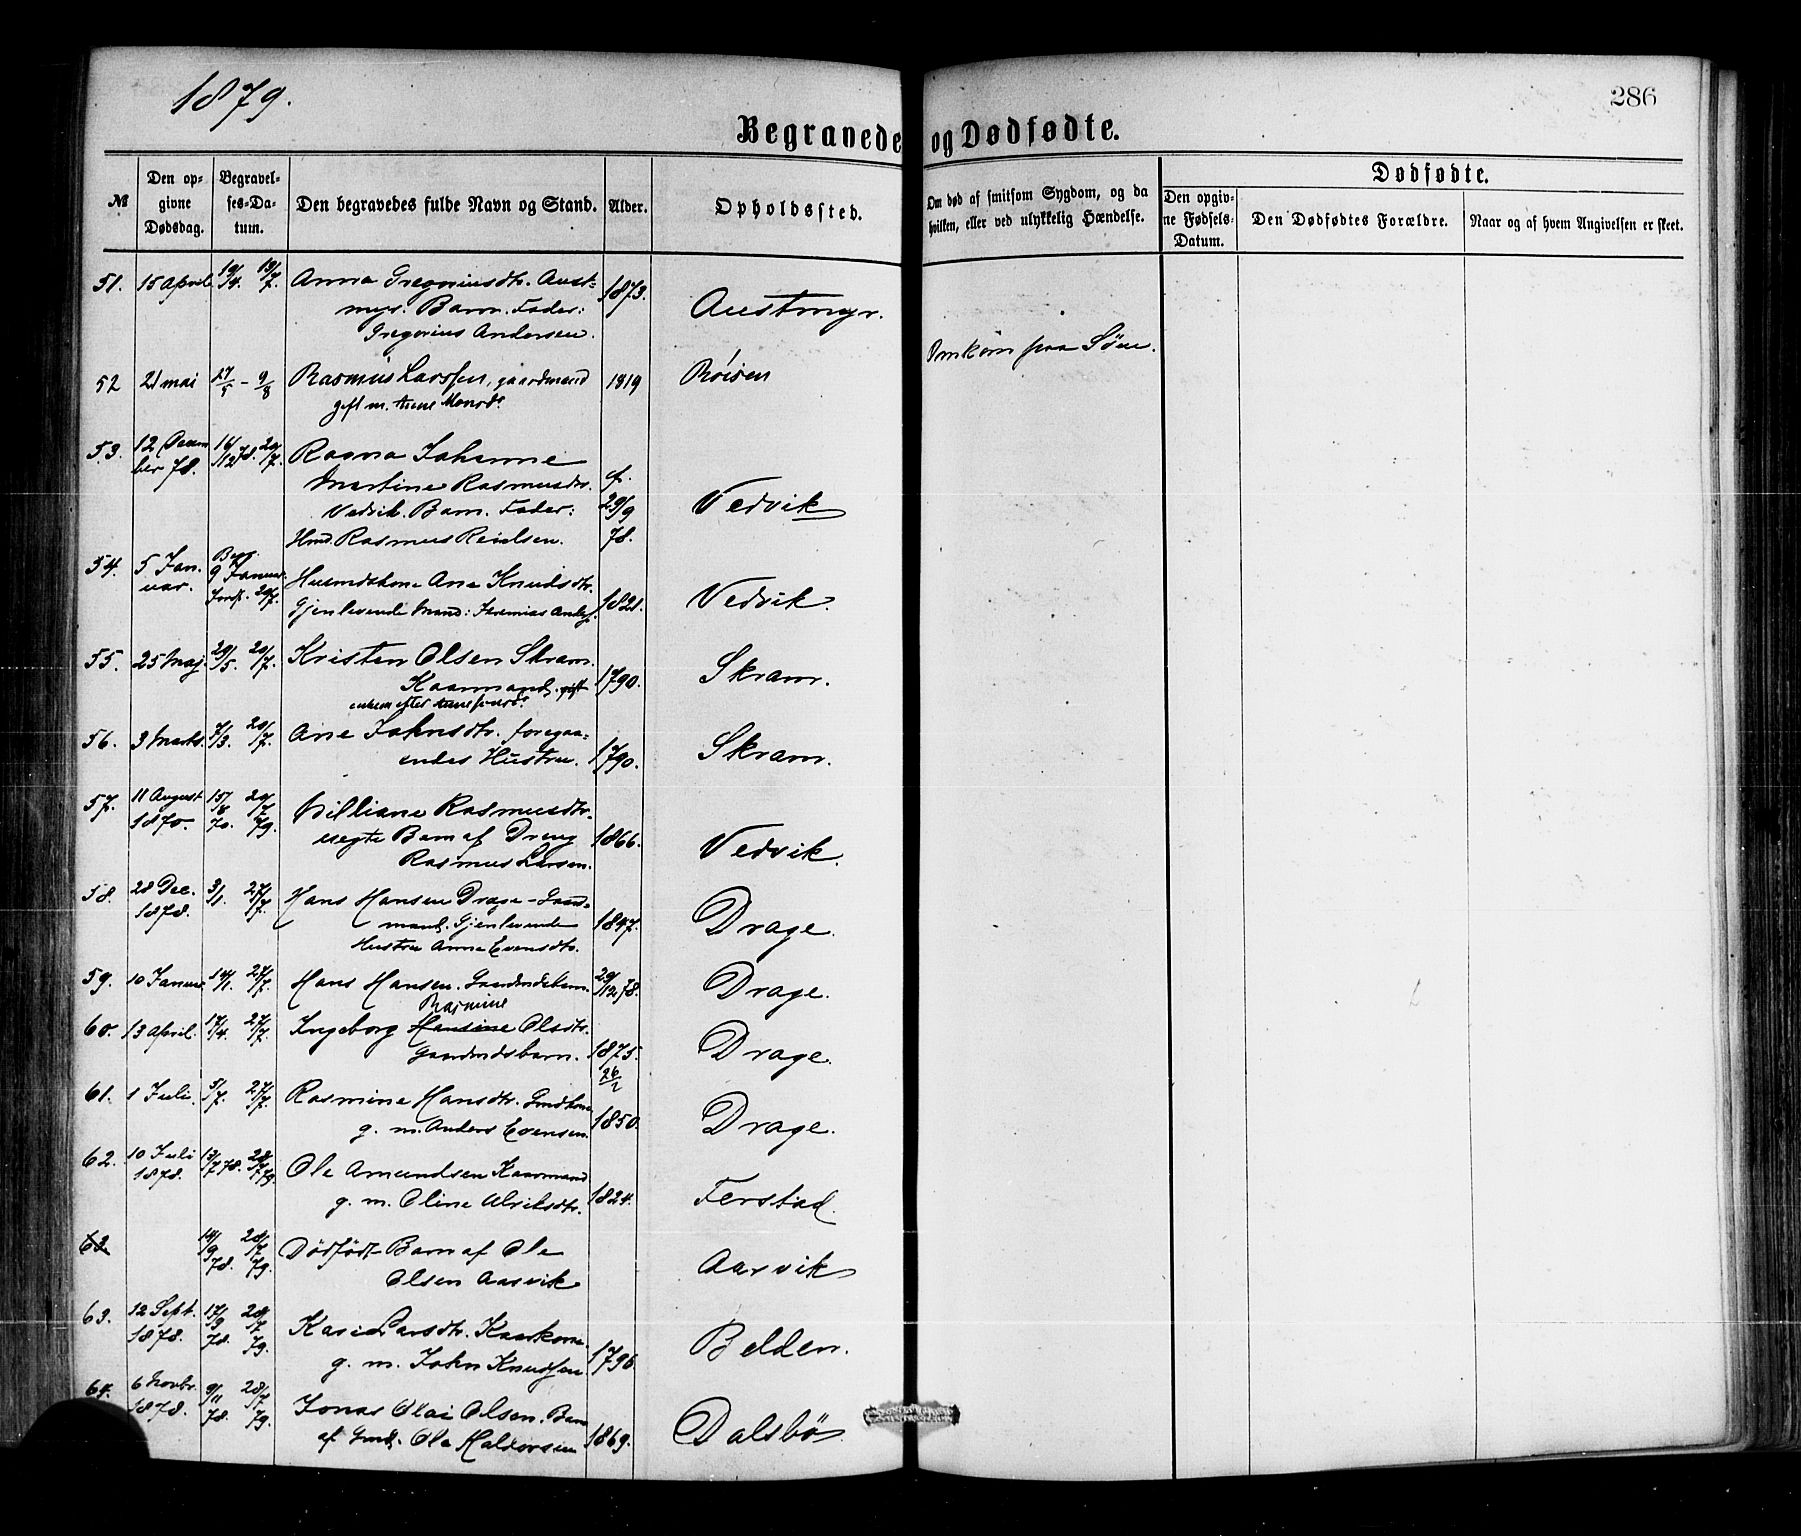 1879.
286
Begravede og Dødfødte.
№
Den opgivne Dødsdag.
Begravelses-Datum.
Den begravedes fulde Navn og Stand.
Alder.
Opholdssted.
Om død af smitsom Sygdom, og da hvilken, eller ved ulykkelig Hændelse.
Dødfødte.
Den opgivne Fødsels-Datum.
Den Dødfødtes Forældre.
Naar og af hvem Angivelsen er skeet.
51. 15 April 19/4. 19/7. Anna Gregoriusdtr. Aust-
myr. Barn. Fader:
Gregorius Andersen.
1873. Austmyr.
52 21 mai 27/5 - 9/8 Rasmus Larssen, gaardmand
gift m. Anne Monsdr
1819 Röisen Omkom paa Söen.
53. 12 Decem
ber 78. 16/12 78. 20/7. Ragna Johanne
Martine Rasmusdtr.
Vedvik. Barn. Fader:
Hmd. Rasmus Reielsen.
f.
29/9
78.
Vedvik
54. 5 Jan.
uar. Begr.
9 Januar
Jordf. 20/7. Husmdskone Ane Knudsdtr.
Gjenlevende Mand: Jeremias Anders.
1821. Vedvik.
55. 25 Maj. 29/5. 20/7. Kristen Olsen Skram.
Kaarmand. gift
enkem. efter
1790. Skram.
56. 3 Marts. 7/3. 20/7. Ane Johnsdtr. foregaa-
endes Hustru.
1790. Skram.
57. 11 August
1870. 15/8 70. 20/7 79. Villiane Rasmusdtr.
uegte Barn af Dreng
Rasmus Larsen.
1866. Vedvik.
58. 28 Dec.
1878. 3/1. 27/7. Hans Hansen Drage - Gaard-
mand. Gjenlevende
Hustru Anne Evensdtr.
1847. Drage.
59. 10 Januar. 14/1. 27/7. Hans Hansen. Gaardmdsbarn.
29/12 78. Drage.
Rasmine
60. 13 April. 17/4. 27/7. Ingeborg Hansine Olsdtr.
Gaardmdsbarn.
1875.
26/2
Drage.
61. 1 Juli. 5/7. 27/7. Rasmine Hansdtr. Gmdkone
g. m. Anders Evensen.
1850. Drage.
62. 10 Juli
1878. 13/7 78. 28/7 79. Ole Amundsen Kaarmand
g. m. Oline Alriksdtr.
1824. Ferstad.
63 14/9 78. 28/7 79. Dödfödt Barn af Ole
Olsen Aarvik
Aarvik
63. 12 Sept.
1878. 17/9 78 28/7 79. Kari Larsdtr. Kaarkone
g. m. John Knudsen
1796 Belden.
64. 6 Novbr.
1878. 9/11 78. 28/7 79. Jonas Olai Olsen. Barn
af Gmd. Ole Haldorsen
1869. Dalsbö.